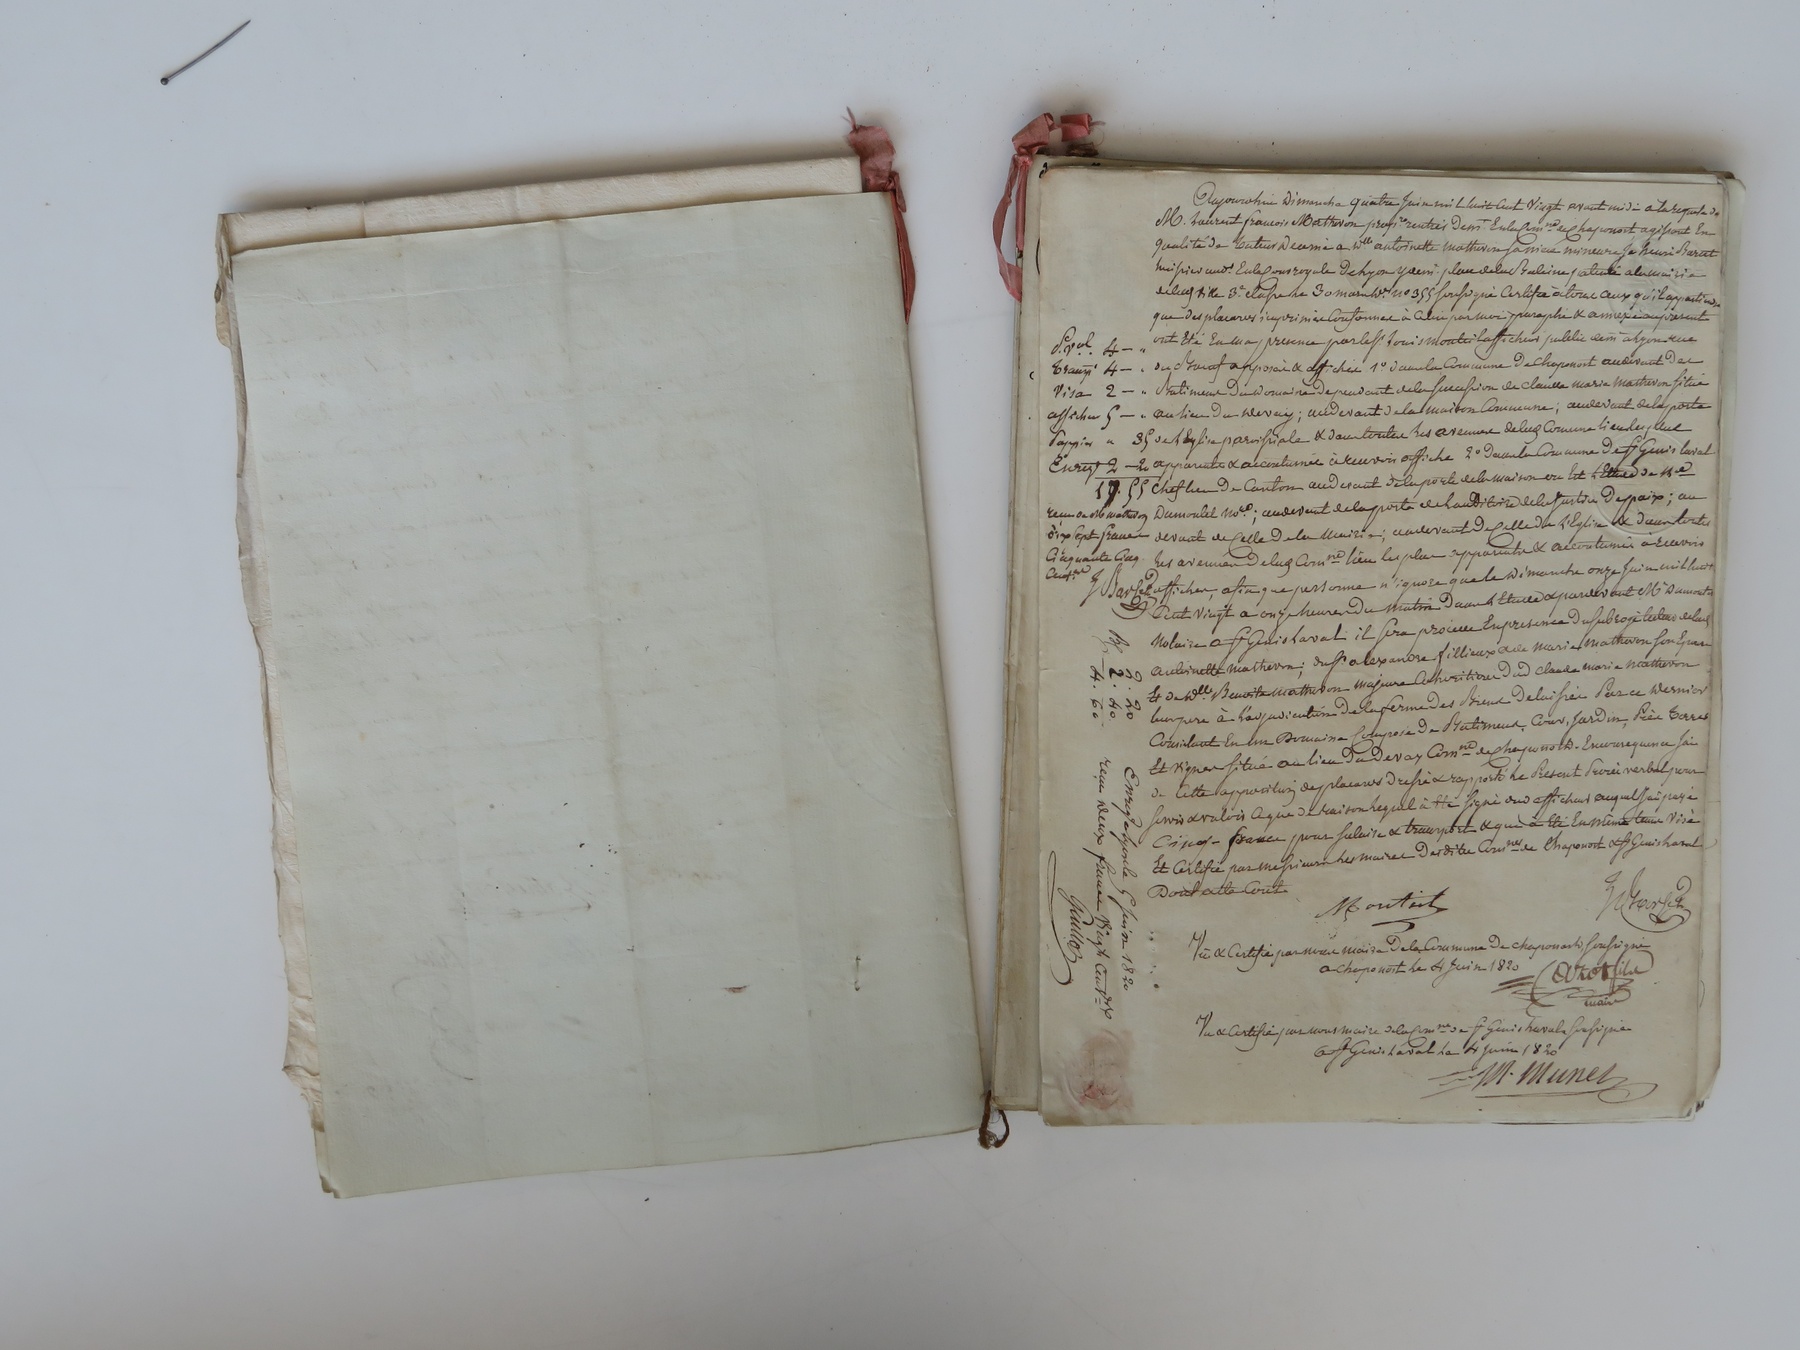 Aujourdhui Dimanche quatre Juin mil huit Cent Vingt avant midi a la requete de
M. Laurent françois Mathevon propre rentier demt En la Comne de chaponost agissant En
qualité de tuteur décerné a Melle antoinette mathevon sa niece mineure Je henri Barset
huissier audr En la Cour royale de Lyon y demt place de la Baleine patenté a la mairie
de lad. Ville 3e classe le 30 mars dr no 355 soussigné Certifie à tous ceux qu'il appartiendra
que des placards imprimés Conformes à Celui par moi paraphé & annexé au présent
ont Eté En ma presence par le Sr Louis monteil afficheur public demt a Lyon rue
du Bœuf apposés & affichés 1o dans la Commune De chaponost audevant des
Batimens du domaine dependant de la succession de claude marie mathevon situé
au lieu du devay ; audevant de la maison Commune ; audevant de la porte
de l'Eglise paroissiale & dans toutes les avenues de lad. Comune lieux les plus
apparents & accoutumés à recevoir affiche 2o dans la Commune De St Genis laval
chef lieu De Canton audevant de la porte de la maison ou Est l'Etude de Me
Dumontel nore ; audevant de la porte de l'auditoire de la Justice De paix ; au
devant de Celle De la Mairie ; audevant De Celle de l'Eglise & dans toutes
les avenues de lad. Comne lieux les plus apparents & accoutumés à recevoir
affiches, afin que personne n'ignore que le Dimanche onze Juin mil huit
Cent Vingt a onze heures du matin Dans l'Etude & pardevant Me Dumontel
Notaire a St Genis Laval il sera procédé En presence Du subrogé tuteur de lad.
antoinette mathevon ; du Sr alexandre fillieux & de marie mathevon son Epouse
Et de Delle Benoite mathevon majeure Cohéritiers Dud. claude marie mathevon
leur pere à l'adjudication de la ferme des Biens Delaissés Par ce dernier
Consistant En un Domaine Composé De Batimens, Cour, Jardin, Prés terres
Et vignes situé au lieu Du Devay Comne de chaponost. En consequence j'ai
de Cette apposition de placards dressé & rapporté le Présent Procès verbal pour
servir & valoir a que de raison lequel à Eté signé dud. afficheur auquel j'ai payé
Cinq francs pour salaire & transport & qui à Eté En même tems Visé
Et Certifié par messieurs les maires Desdites Comnes de Chaponost & St Genis laval
Dont acte Coute
Monteil
H Barset
Vu & Certifié par nous maire De la Commune De chaponost soussigné
a chaponost le 4 Juin 1820
maire
Vu & Certifié par nous maire de la Comne de St Genis Laval soussigné
a St Genis Laval le 4 Juin 1820
M. Munet
P. Val. 4 – "
transpt 4 – "
Visa 2 – "
afficheur 5 – "
Pappier " 35
Enregt 2 – 20
17. 55
reçu de Mr mathevon
dix sept francs
Cinquante Cinq
Centmes
H Barset
2. 20
2. 40.
4. 60.
Enregé a Lyon le 5 Juin 1820
reçu deux francs Vingt Centimes